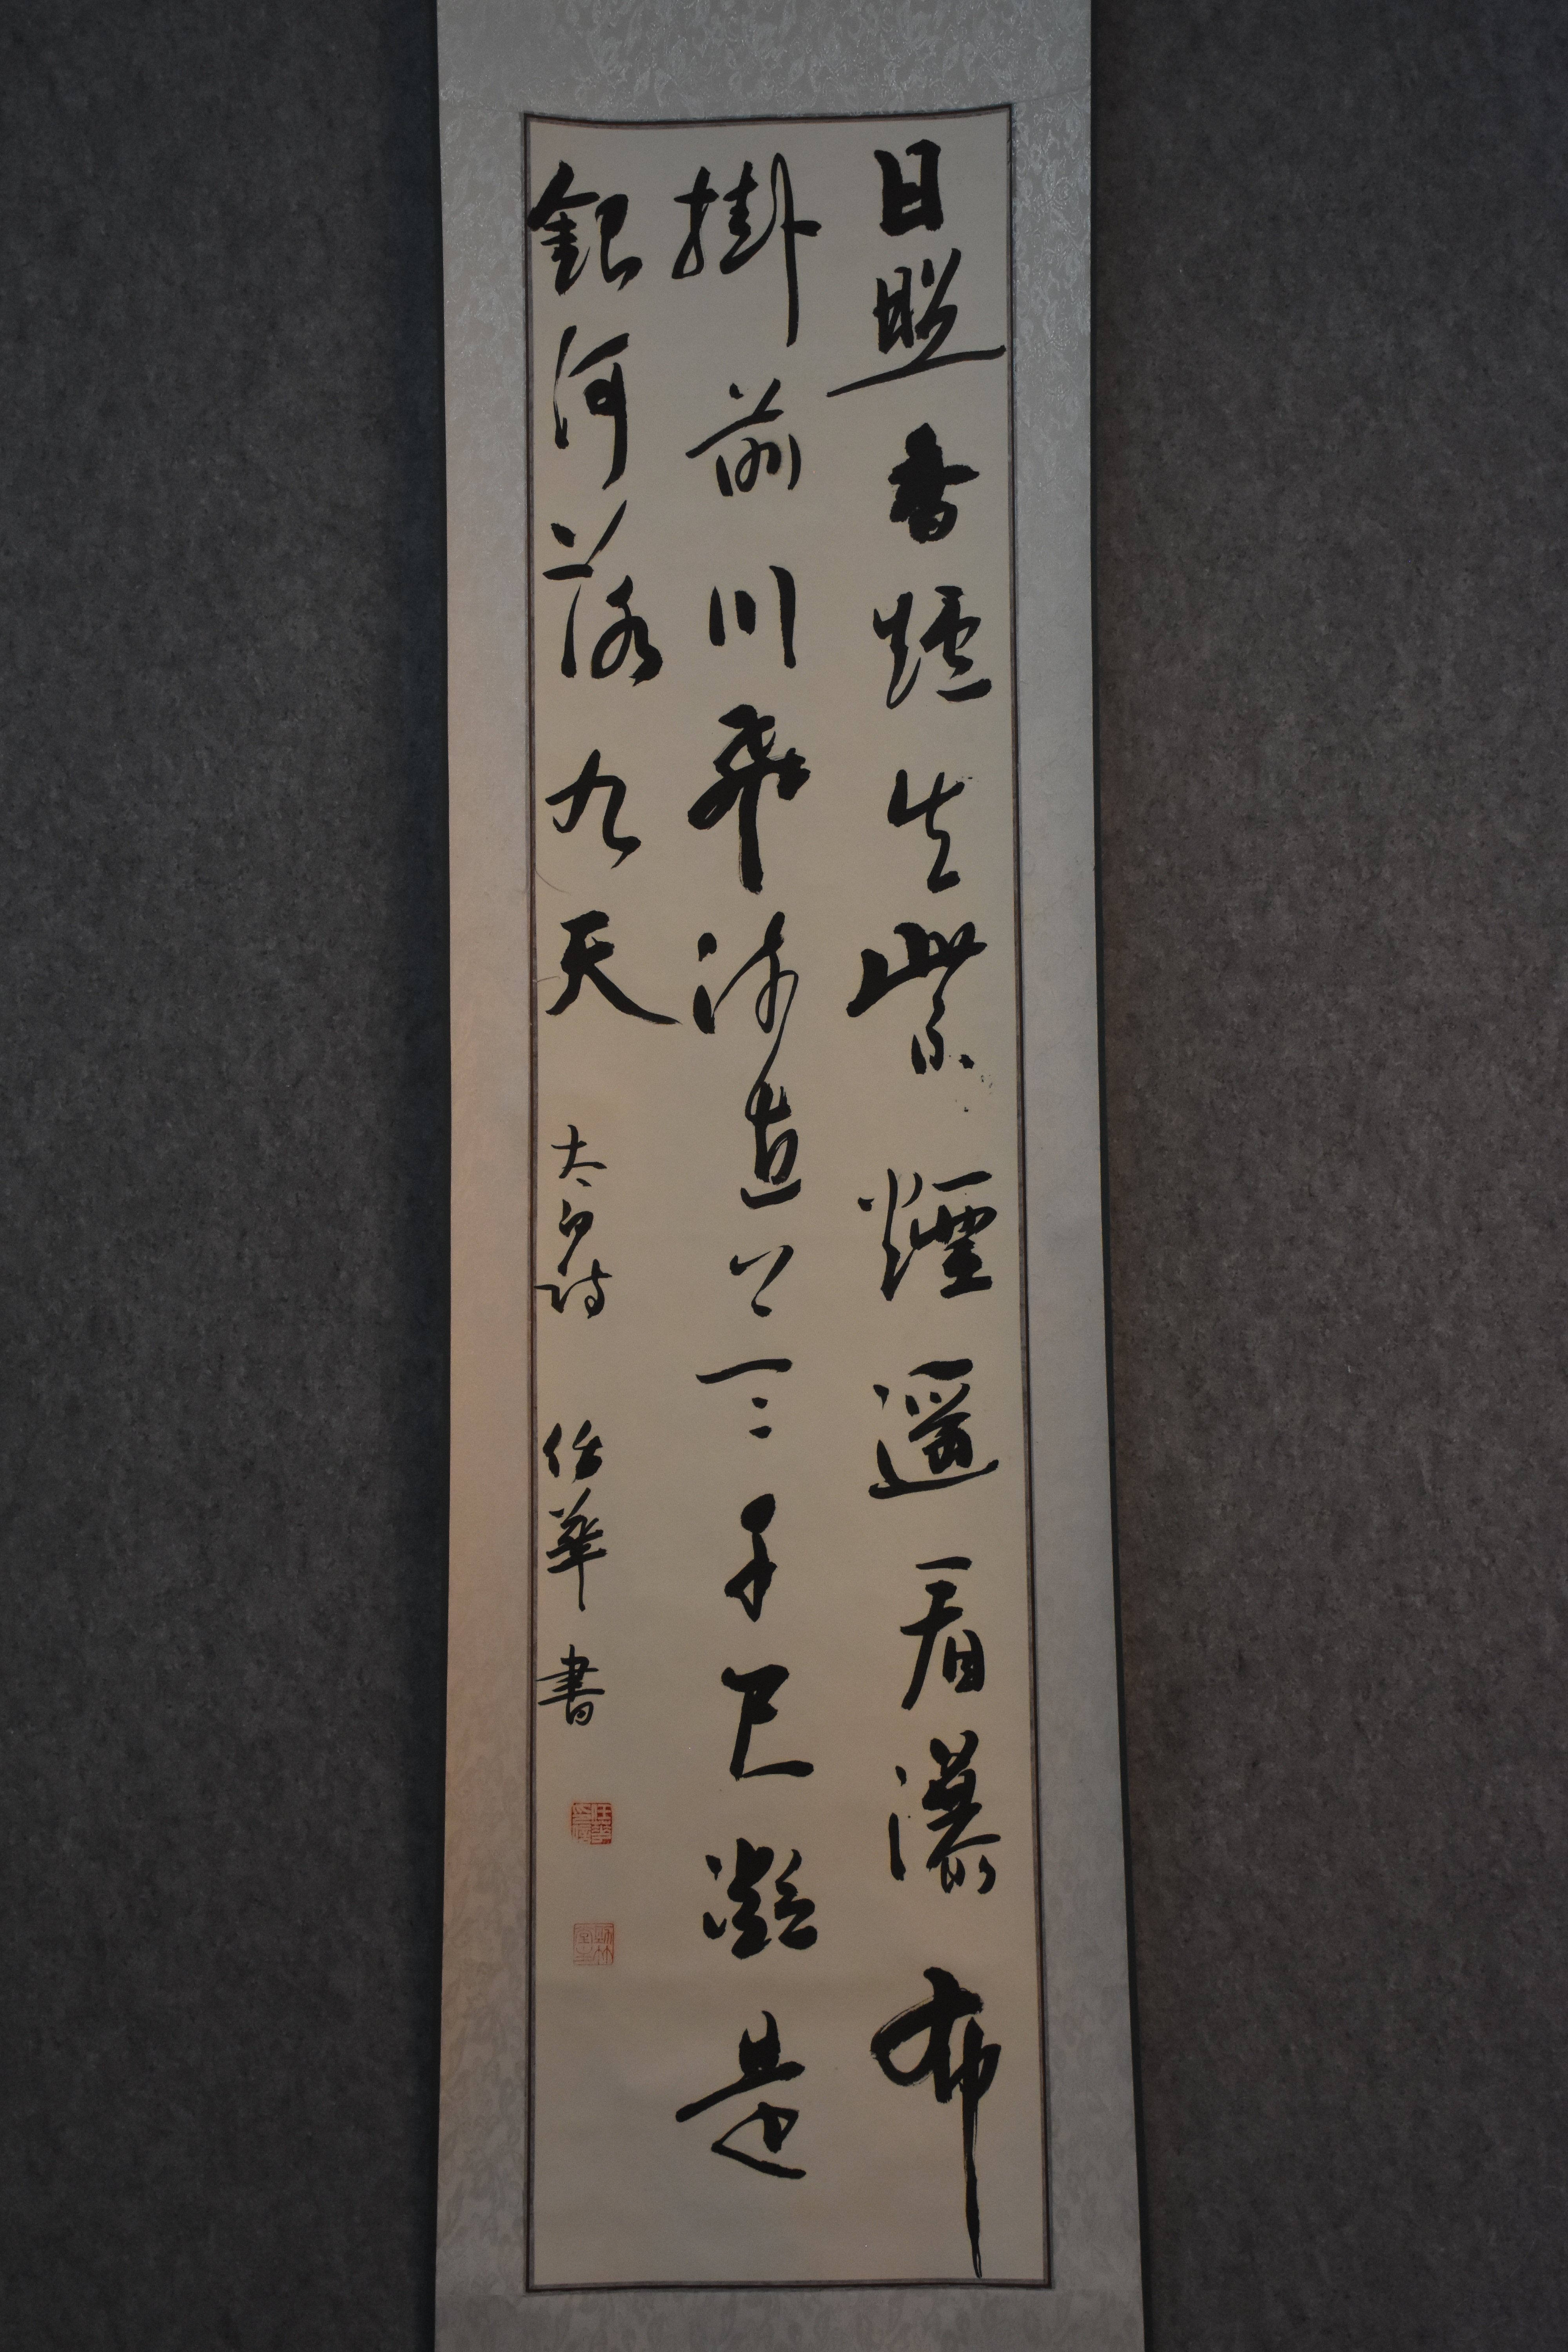 日照香爐生紫煙遥看瀑布
掛前川飛流直下三千尺疑是
銀河落九天
太白詩
任華書